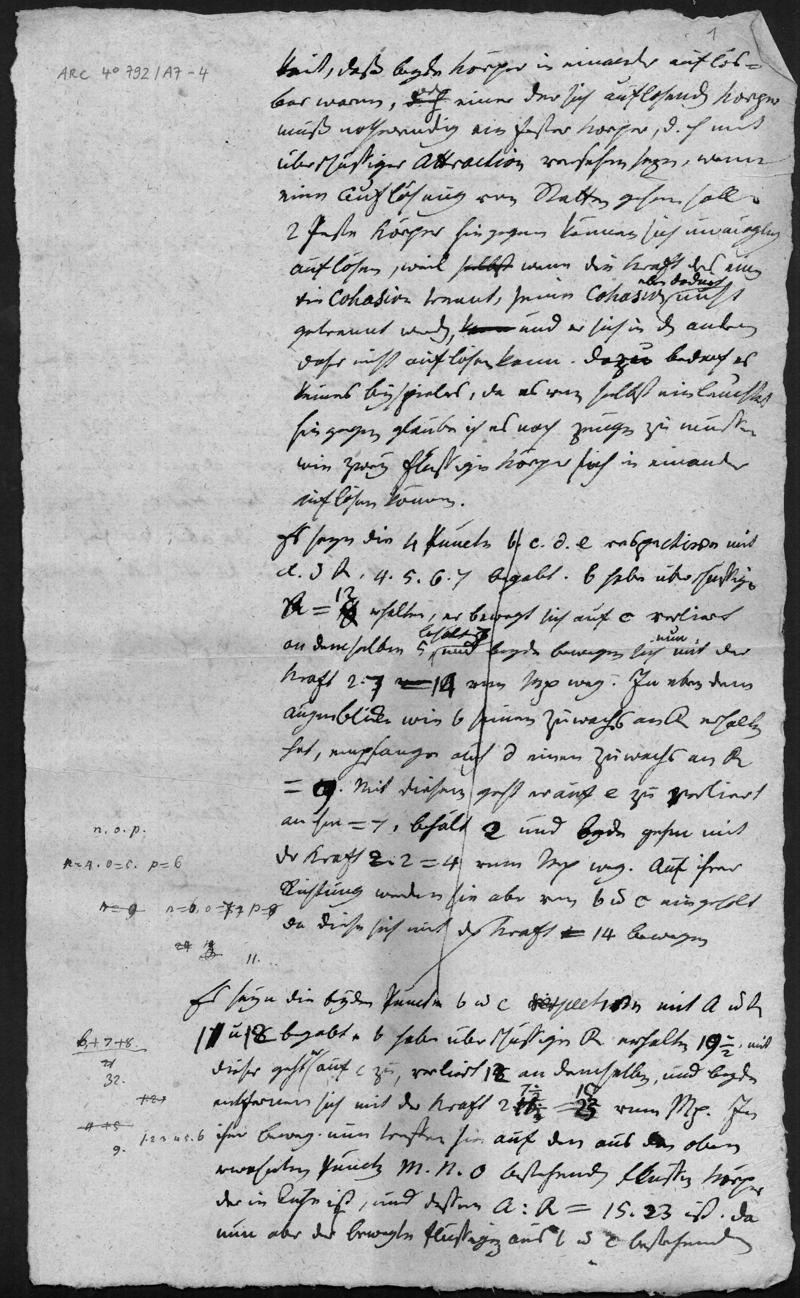 1
ARC 4° 792/A7-4
keit, daß beyde Körper in einander auflös=
bar waren, einer der sich auflösenden Körper
muß nothwendig ein fester Körper, d. h. mit
überschüssiger Attraction versehen seyn, wenn
eine Auflösung von Statten gehen soll.
2 feste Körper hingegen können sich unmöglich
auflösen, weil selbst wenn die Kraft des einen
die Cohäsion trennt, seine Cohäsion aber dadurch nicht
getrennt werde, und er sich in dem andern
daher nicht auflösen kann. Dazu bedarf es
keines Beyspieles, da es von selbst einleuchtet
hingegen glaube ich es noch zeigen zu müssen
wie zwey flüssige Körper sich in einander
auflösen können.
Es seyen die 4 Puncte b. c. d. e respectiven mit
A. 4. 5. 6. 7 begabt. b habe überschüssige
R = 12 erhalten, er bewegt sich auf c verliert
an demselben 5, behält 7 und beyde bewegen sich nun mit der
Kraft 2. 7 = 14 vom Mp weg. In eben dem
Augenblicke wie b seinen Zuwachs an R erhalten
hat, empfange auch d einen Zuwachs an R
= 9. Mit diesem geht er auf e zu verliert
an ihn = 7, behält 2 und beyde gehen mit
der Kraft 2. 2 = 4 vom Mp weg. Auf ihrer
Richtung werden sie aber von b u c eingeholt
da diese sich mit der Kraft = 14 bewegen
n. o. p.
p = 6
11.
Es seyen die beyden Puncte b u c respectiven mit A u R
17 u 18 begabt. b habe überschüssige R erhalten 19 1/2, mit
dieser geht er auf c zu, verliert 12 an demselben, und beyde
entfernen sich mit der Kraft 2 7 1/2 = 15 vom Mp. In
ihrer Beweg. nun treffen sie auf den aus den oben
erwähnten Puncten M. N. O bestehenden flüssigen Körper
der in Ruhe ist, und dessen A : R = 15. 23 ist. Da
nun aber der bewegte flüssige aus b u c bestehende
6+7+8.
21
32.
9.